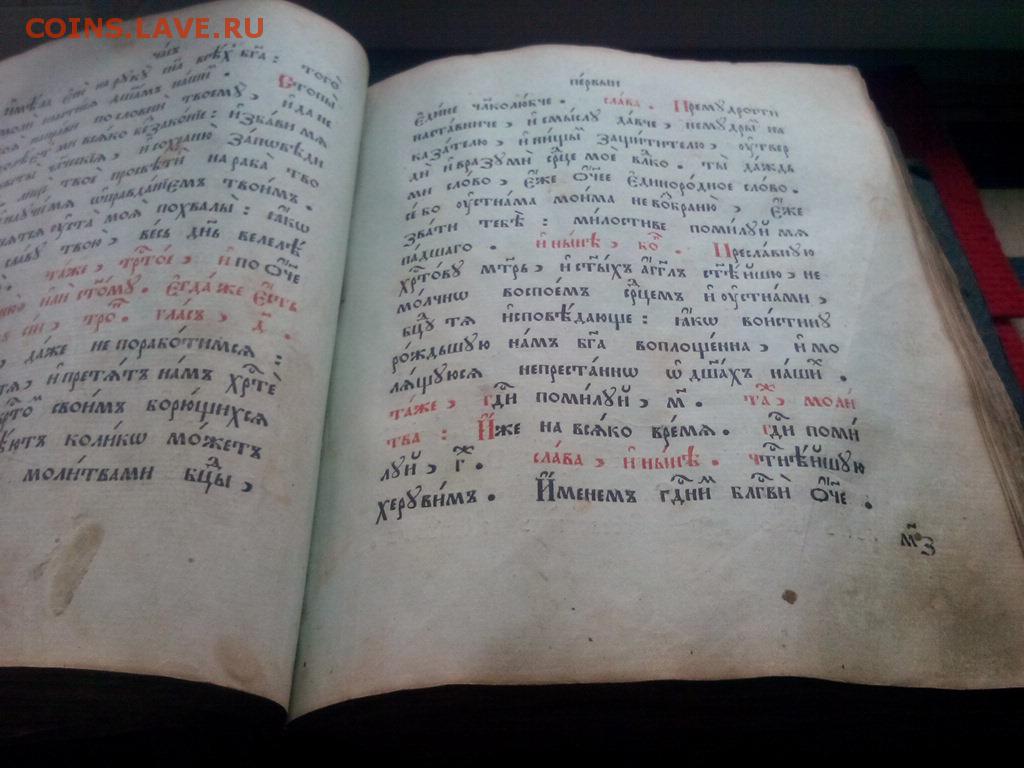 COINS.LAVE.RU
ча́съ
на рꙋкꙋ̀ всѣ́хъ бг҃а : того̀
Стопы̀
напра́ви по словесѝ твоемꙋ̀ , и҆ да не
ми всѧ́ко беззако́нїе : и҆зба́ви мѧ
и҆ сохраню̀ за́пѡвѣди
лицѐ твоѐ просвѣтѝ на раба̀ тво
ѡ҆правда́нїемъ твои́мъ .
ᲂу҆ста̀ моѧ̀ похвалы̀ : ꙗ҆́кѡ
сла́вꙋ твою̀ , весь дн҃ь велелѣ́
та́же , трⷭ҇то́е , и҆ по ѻ҆́ч҃е
и҆лѝ ст҃о́мꙋ . Е҆гда́ же є҆́сть
сїѝ , тро . гла́съ , д҃ .
да́же не порабо́тимсѧ :
и҆ претѧ́тъ на́мъ хрⷭ҇тѐ
свои́мъ борю́щихсѧ
коли́кѡ мо́жетъ
моли́твами бцⷣы ,
пе́рвыи
Е҆ди́не чл҃колю́бче . сла́ва . Премꙋ́дрости
наста́вниче , и҆ смы́слꙋ да́вче , немꙋ́дры на
каза́телю , и҆ ни́щы защи́тителю , ᲂу҆твер
дѝ и҆ вразꙋмѝ срⷣце моѐ влⷣко . ты̀ да́ждь
ми сло́во , є҆́же ѻ҆́ч҃ее є҆диноро́дное сло́во .
се́ бо ᲂу҆стна́ма мои́ма не возбраню̀ , є҆́же
зва́ти тебѣ̀ : ми́лостиве поми́лꙋй мѧ
па́дшаго . и҆ ны́нѣ , бо . Пресла́внꙋю
хрⷭ҇то́вꙋ мт҃рь , и҆ ст҃ы́хъ а҆́гг҃лъ ст҃ѣ́йшꙋю , не
мо́лчнѡ воспое́мъ срⷣцемъ и҆ ᲂу҆стна́ми ,
бцⷣꙋ тѧ̀ и҆сповѣ́дающе : ꙗ҆́кѡ вои́стинꙋ
ро́ждьшꙋю на́мъ бг҃а воплоще́нна , и҆ мо
лѧ́щꙋюсѧ непреста́ннѡ ѡ҆ дш҃а́хъ на́ши .
та́же , гдⷭ҇и поми́лꙋй , м҃ . та́ж моли́
тва : И҆́же на всѧ́ко вре́мѧ . гдⷭ҇и поми́
лꙋй , г҃ . сла́ва , и҆ ны́нѣ . чтⷭ҇нѣ́йшꙋю
херꙋви́мъ . И҆́менемъ гдⷭ҇ни блгⷭ҇вѝ ѻ҆́ч҃е .
м҃з